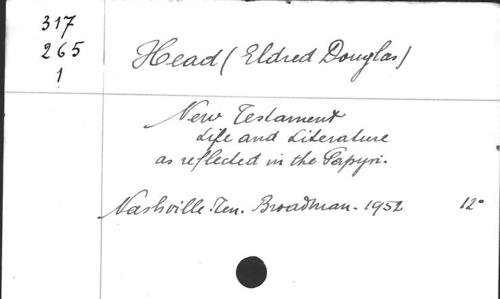 317
265
1
Head (Eldred Douglas)
New Testament
Life and Literature
as reflected in the Papyri.
Nashville. Ten. Broadman - 1952 12°